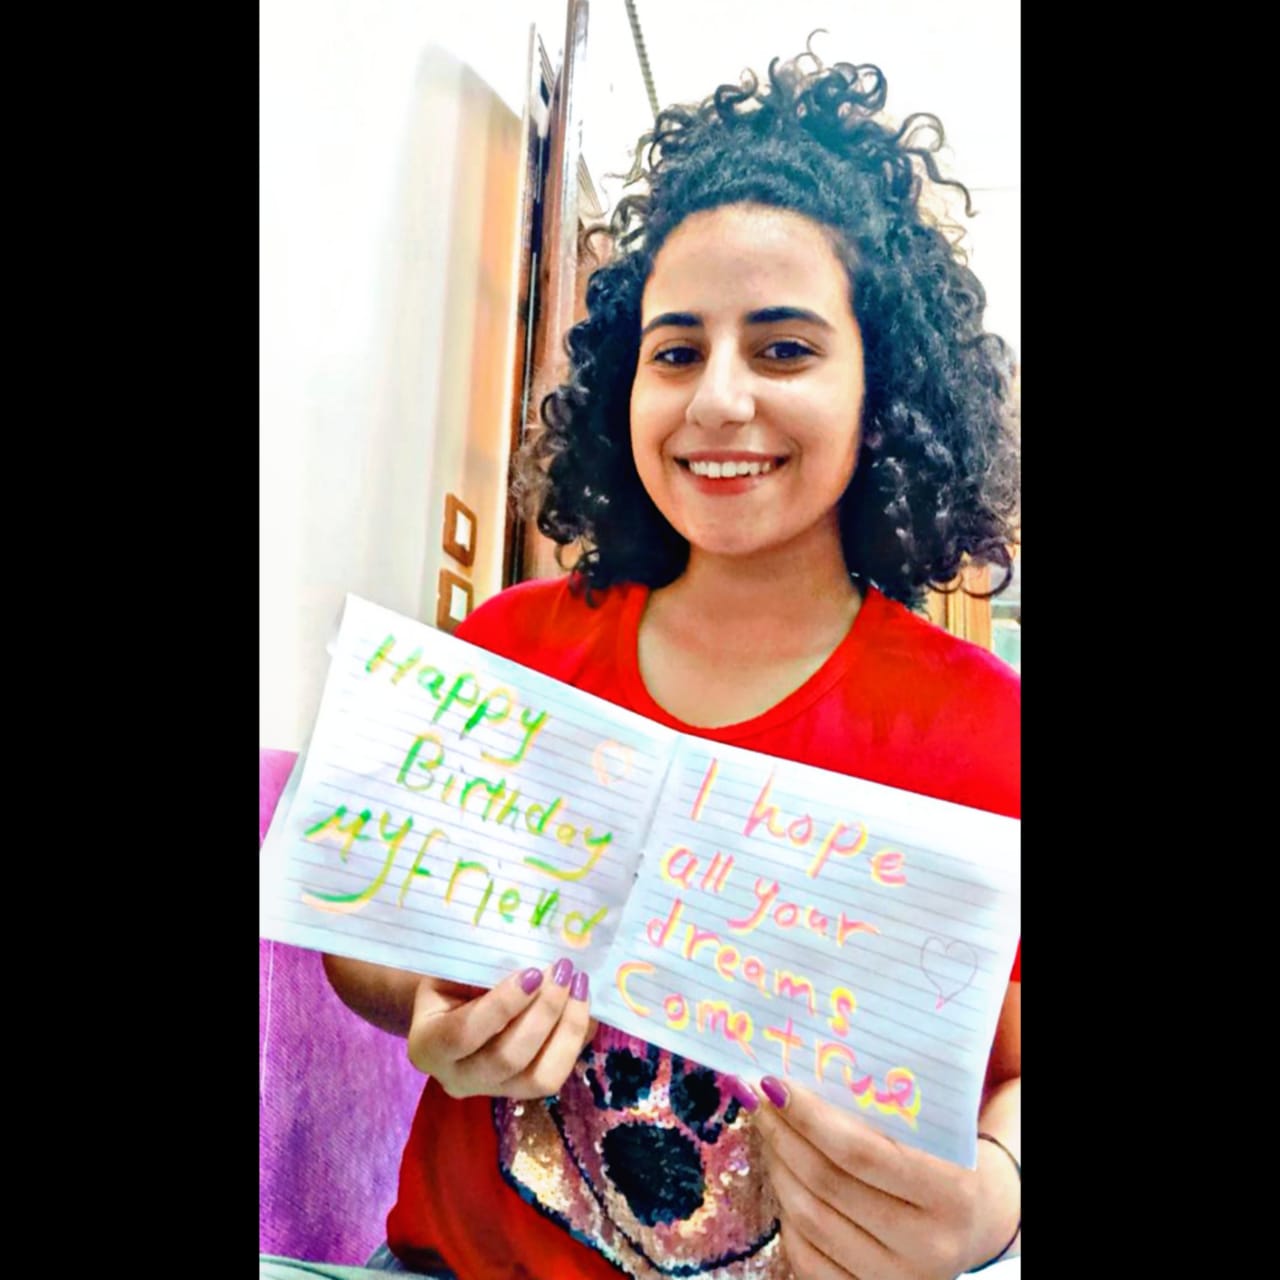 Happy
Birthday
My friend
I hope
all your
dreams
Come true